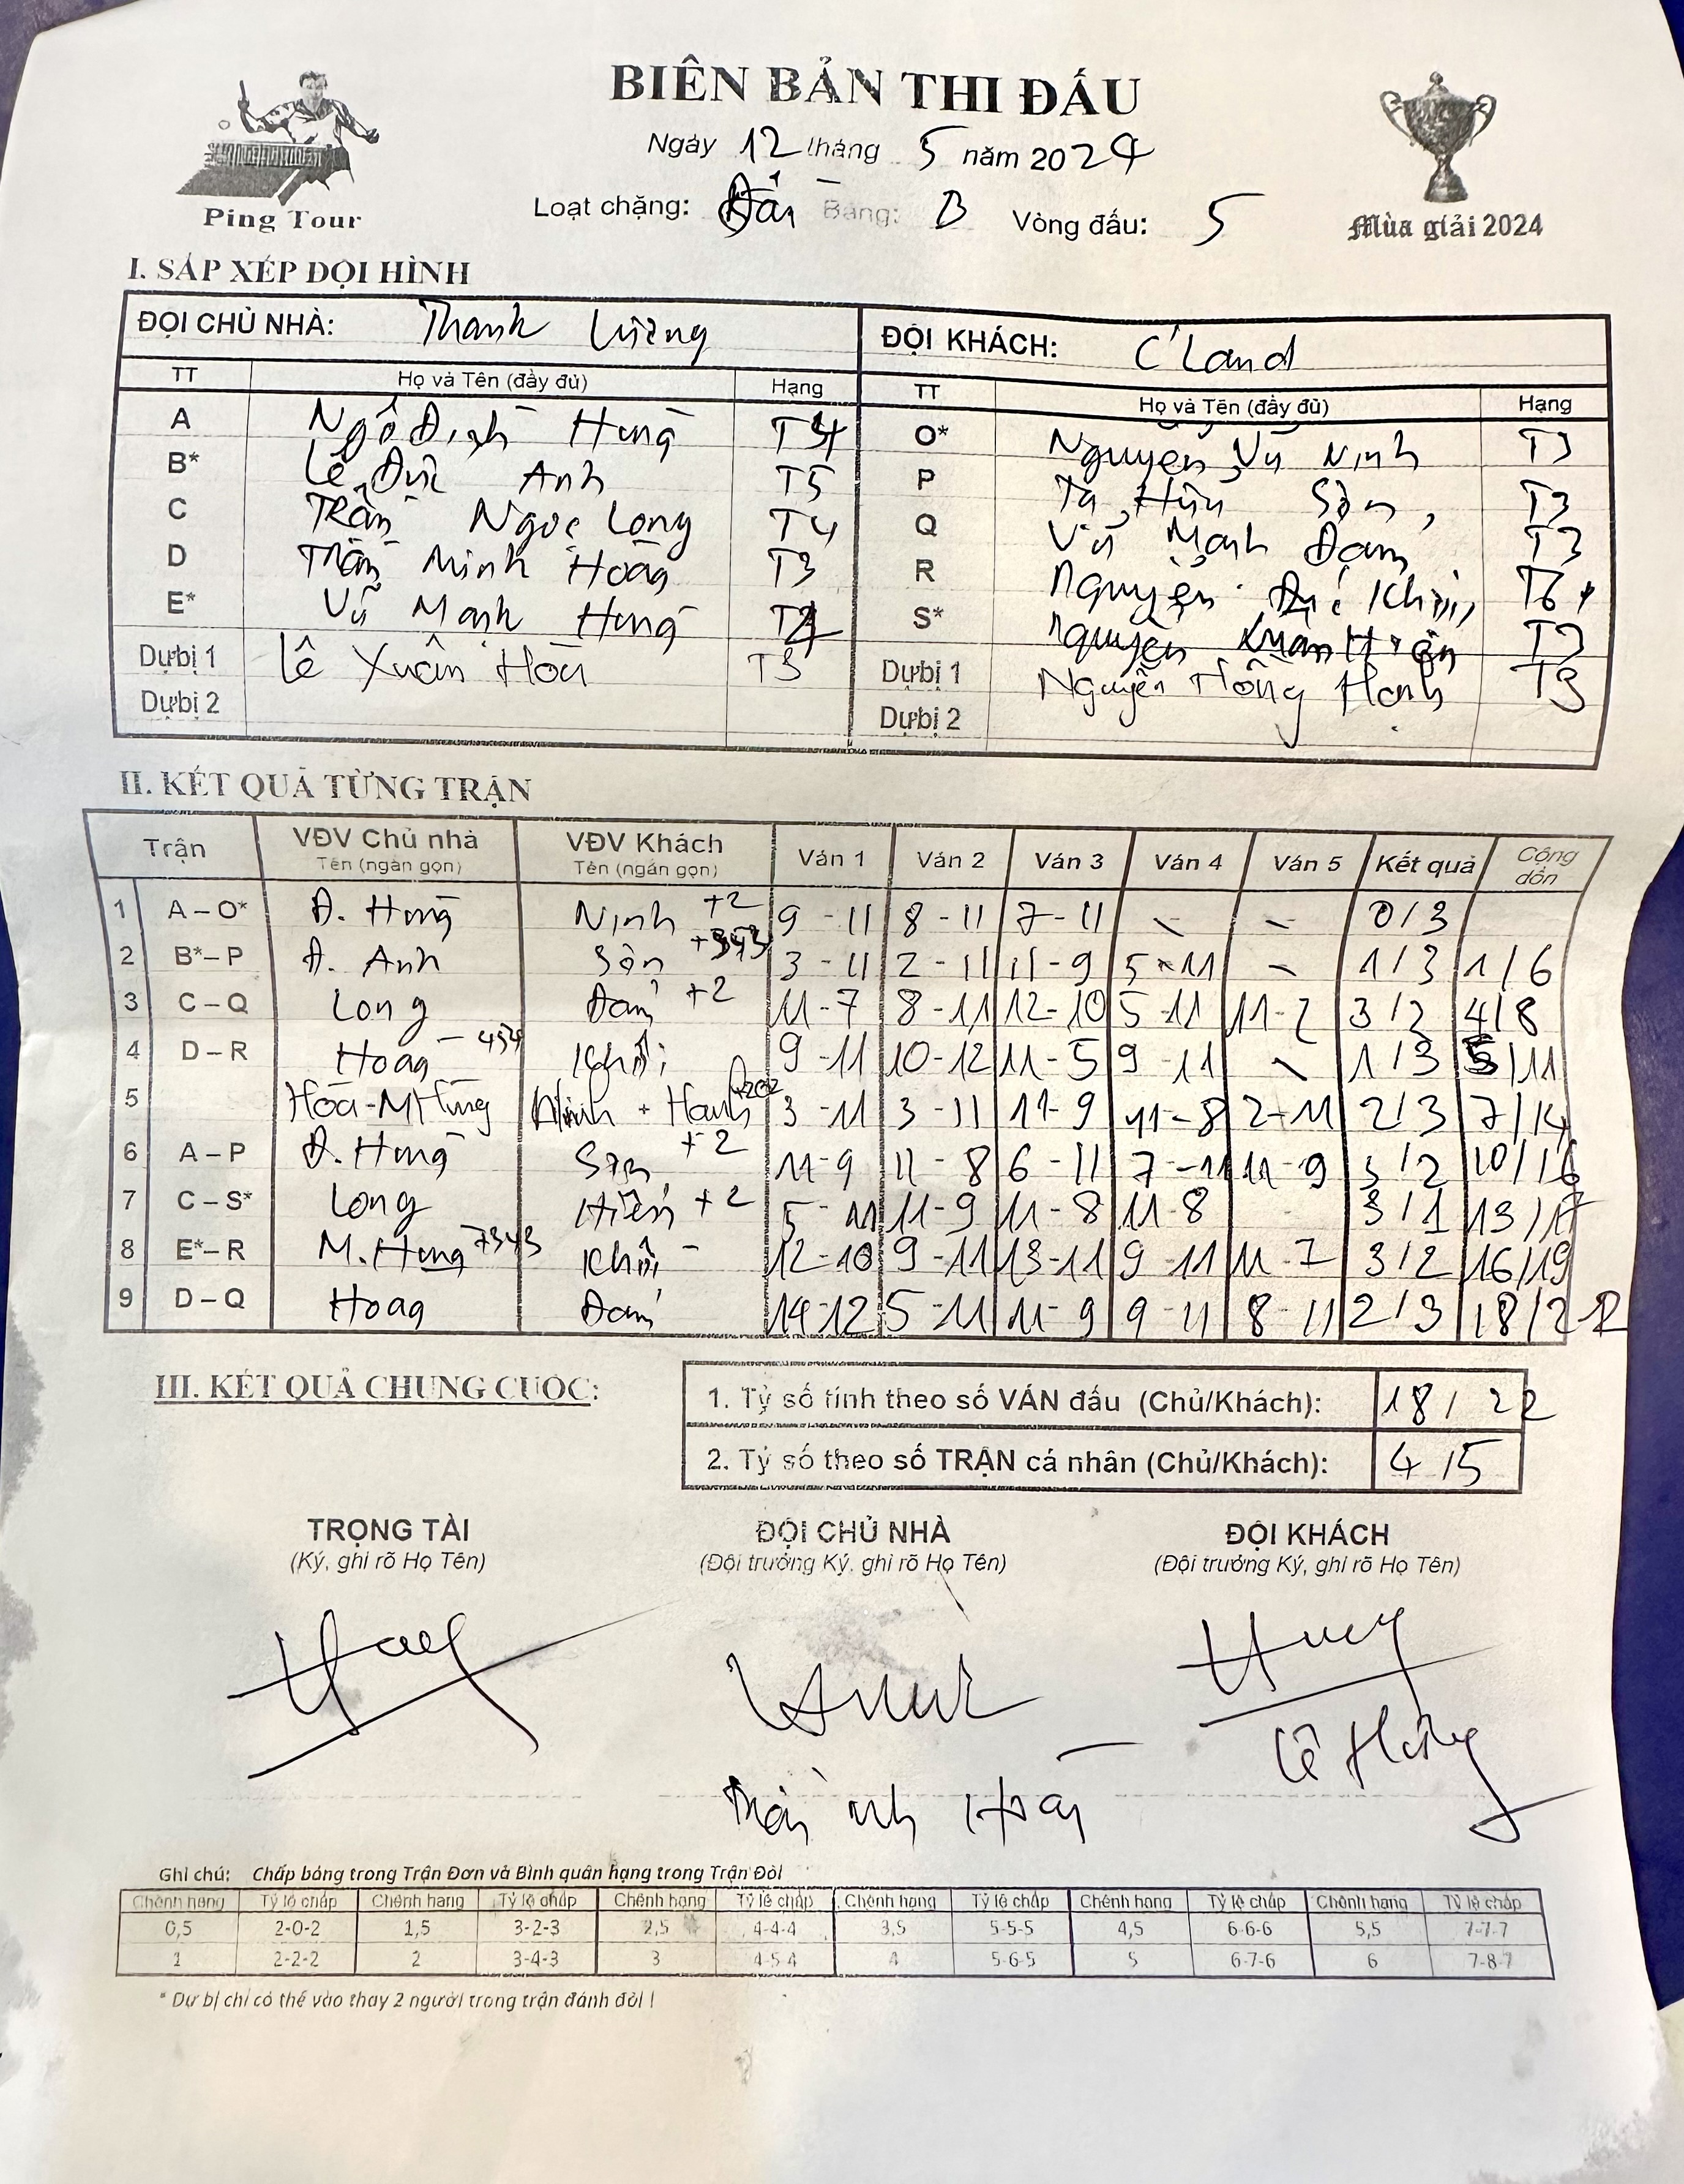 BIÊN BẢN THI ĐẤU
Ngày 12 tháng 5 năm 2024
Loạt chặng: Bảng: B Vòng đấu: 5
Ping Tour
Mùa giải 2024
I. SẮP XẾP ĐỘI HÌNH
ĐỘI CHỦ NHÀ: Thanh Lương ĐỘI KHÁCH: C'Land
TT Họ và Tên (đầy đủ) Hạng TT Họ và Tên (đầy đủ) Hạng
A Ngô Đình Hưng T4 O* Nguyễn Vũ Ninh T3
B* Lê Đức Anh T5 P Tạ Hữu Sơn T3
C Trần Ngọc Long T4 Q Vũ Mạnh Đam T3
D Trần Minh Hoàng T3 R Nguyễn Khôi T6
E* Vũ Mạnh Hưng S* Nguyễn Xuân T3
Dự bị 1 Lê Xuân Hòa T3 Dự bị 1 Nguyễn Hồng Hạnh T3
Dự bị 2 Dự bị 2
II. KẾT QUẢ TỪNG TRẬN
Trận VĐV Chủ nhà Tên (ngắn gọn) VĐV Khách Tên (ngắn gọn) Ván 1 Ván 2 Ván 3 Ván 4 Ván 5 Kết quả Cộng dồn
1 A – O* Đ. Hưng Ninh +2 9 - 11 8 - 11 7 - 11 - - 0/3
2 B* – P Đ. Anh Sơn 3 - 11 2 - 11 11 - 9 5 - 11 - 1/3 1/6
3 C – Q Long Đam +2 11 - 7 8 - 11 12 - 10 5 - 11 11 - 2 3/2 4/8
4 D – R Hoàng 454 Khôi 9 - 11 10 - 12 11 - 5 9 - 11 - 1/3 5/11
5 Hòa - M Hưng Ninh + Hạnh 3 - 11 3 - 11 11 - 9 11 - 8 2 - 11 2/3 7/14
6 A – P Đ. Hưng Sơn +2 11 - 9 11 - 8 6 - 11 7 - 11 11 - 9 3/2 10/16
7 C – S* Long Hiến +2 5 - 11 11 - 9 11 - 8 11 - 8 - 3/1 13/17
8 E* – R M. Hưng Khôi 12 - 10 9 - 11 13 - 11 9 - 11 11 - 7 3/2 16/19
9 D – Q Hoàng Đam 14 - 12 5 - 11 11 - 9 9 - 11 8 - 11 2/3 18/22
III. KẾT QUẢ CHUNG CUỘC:
1. Tỷ số tính theo số VÁN đấu (Chủ/Khách): 18/22
2. Tỷ số theo số TRẬN cá nhân (Chủ/Khách): 4/5
TRỌNG TÀI ĐỘI CHỦ NHÀ ĐỘI KHÁCH
(Ký, ghi rõ Họ Tên) (Đội trưởng Ký, ghi rõ Họ Tên) (Đội trưởng Ký, ghi rõ Họ Tên)
Ghi chú: Chấp bóng trong Trận Đơn và Bình quân hạng trong Trận Đôi
Chênh hạng Tỷ lệ chấp Chênh hạng Tỷ lệ chấp Chênh hạng Tỷ lệ chấp Chênh hạng Tỷ lệ chấp Chênh hạng Tỷ lệ chấp Chênh hạng Tỷ lệ chấp
0,5 2-0-2 1,5 3-2-3 2,5 4-4-4 3,5 5-5-5 4,5 6-6-6 5,5 7-7-7
1 2-2-2 2 3-4-3 3 4-5-4 4 5-6-5 5 6-7-6 6 7-8-7
* Dự bị chỉ có thể vào thay 2 người trong trận đánh đôi !